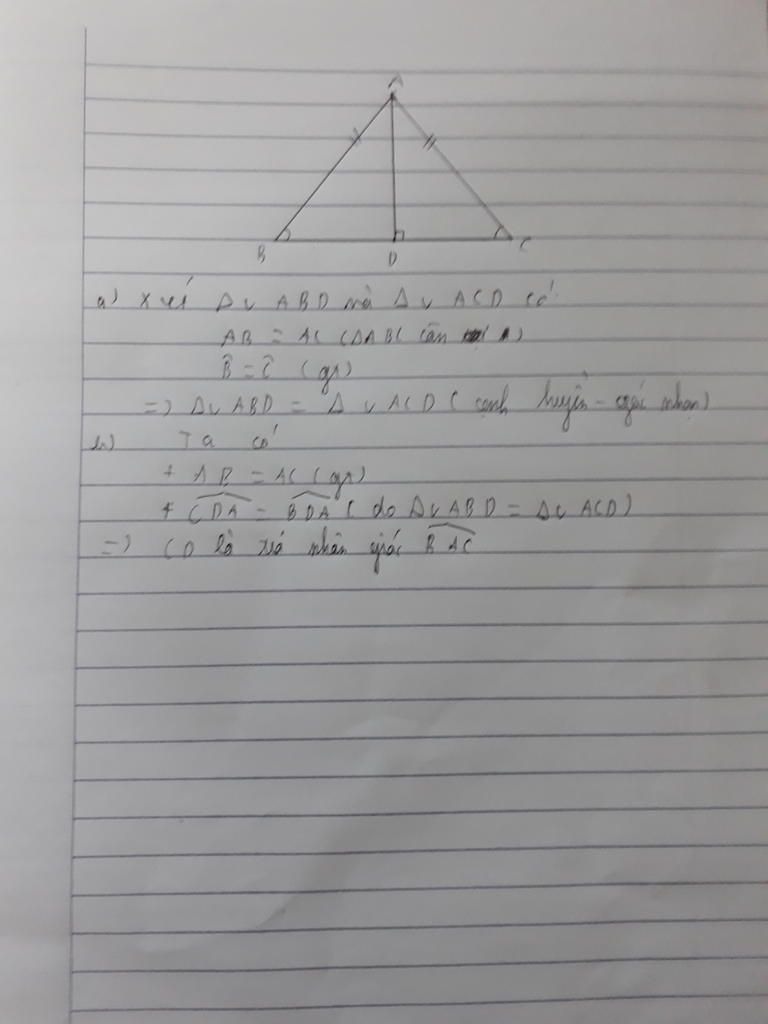 A
B
D
C
a) Xét Δv ABD và Δv ACD có
AB = AC (ΔABC cân A)
B̂ = Ĉ (gt)
=> Δv ABD = Δv ACD (cạnh huyền - góc nhọn)
b) Ta có
+ AB = AC (gt)
+ CDA = BDA (do Δv ABD = Δv ACD)
=> CD là phân giác BAC